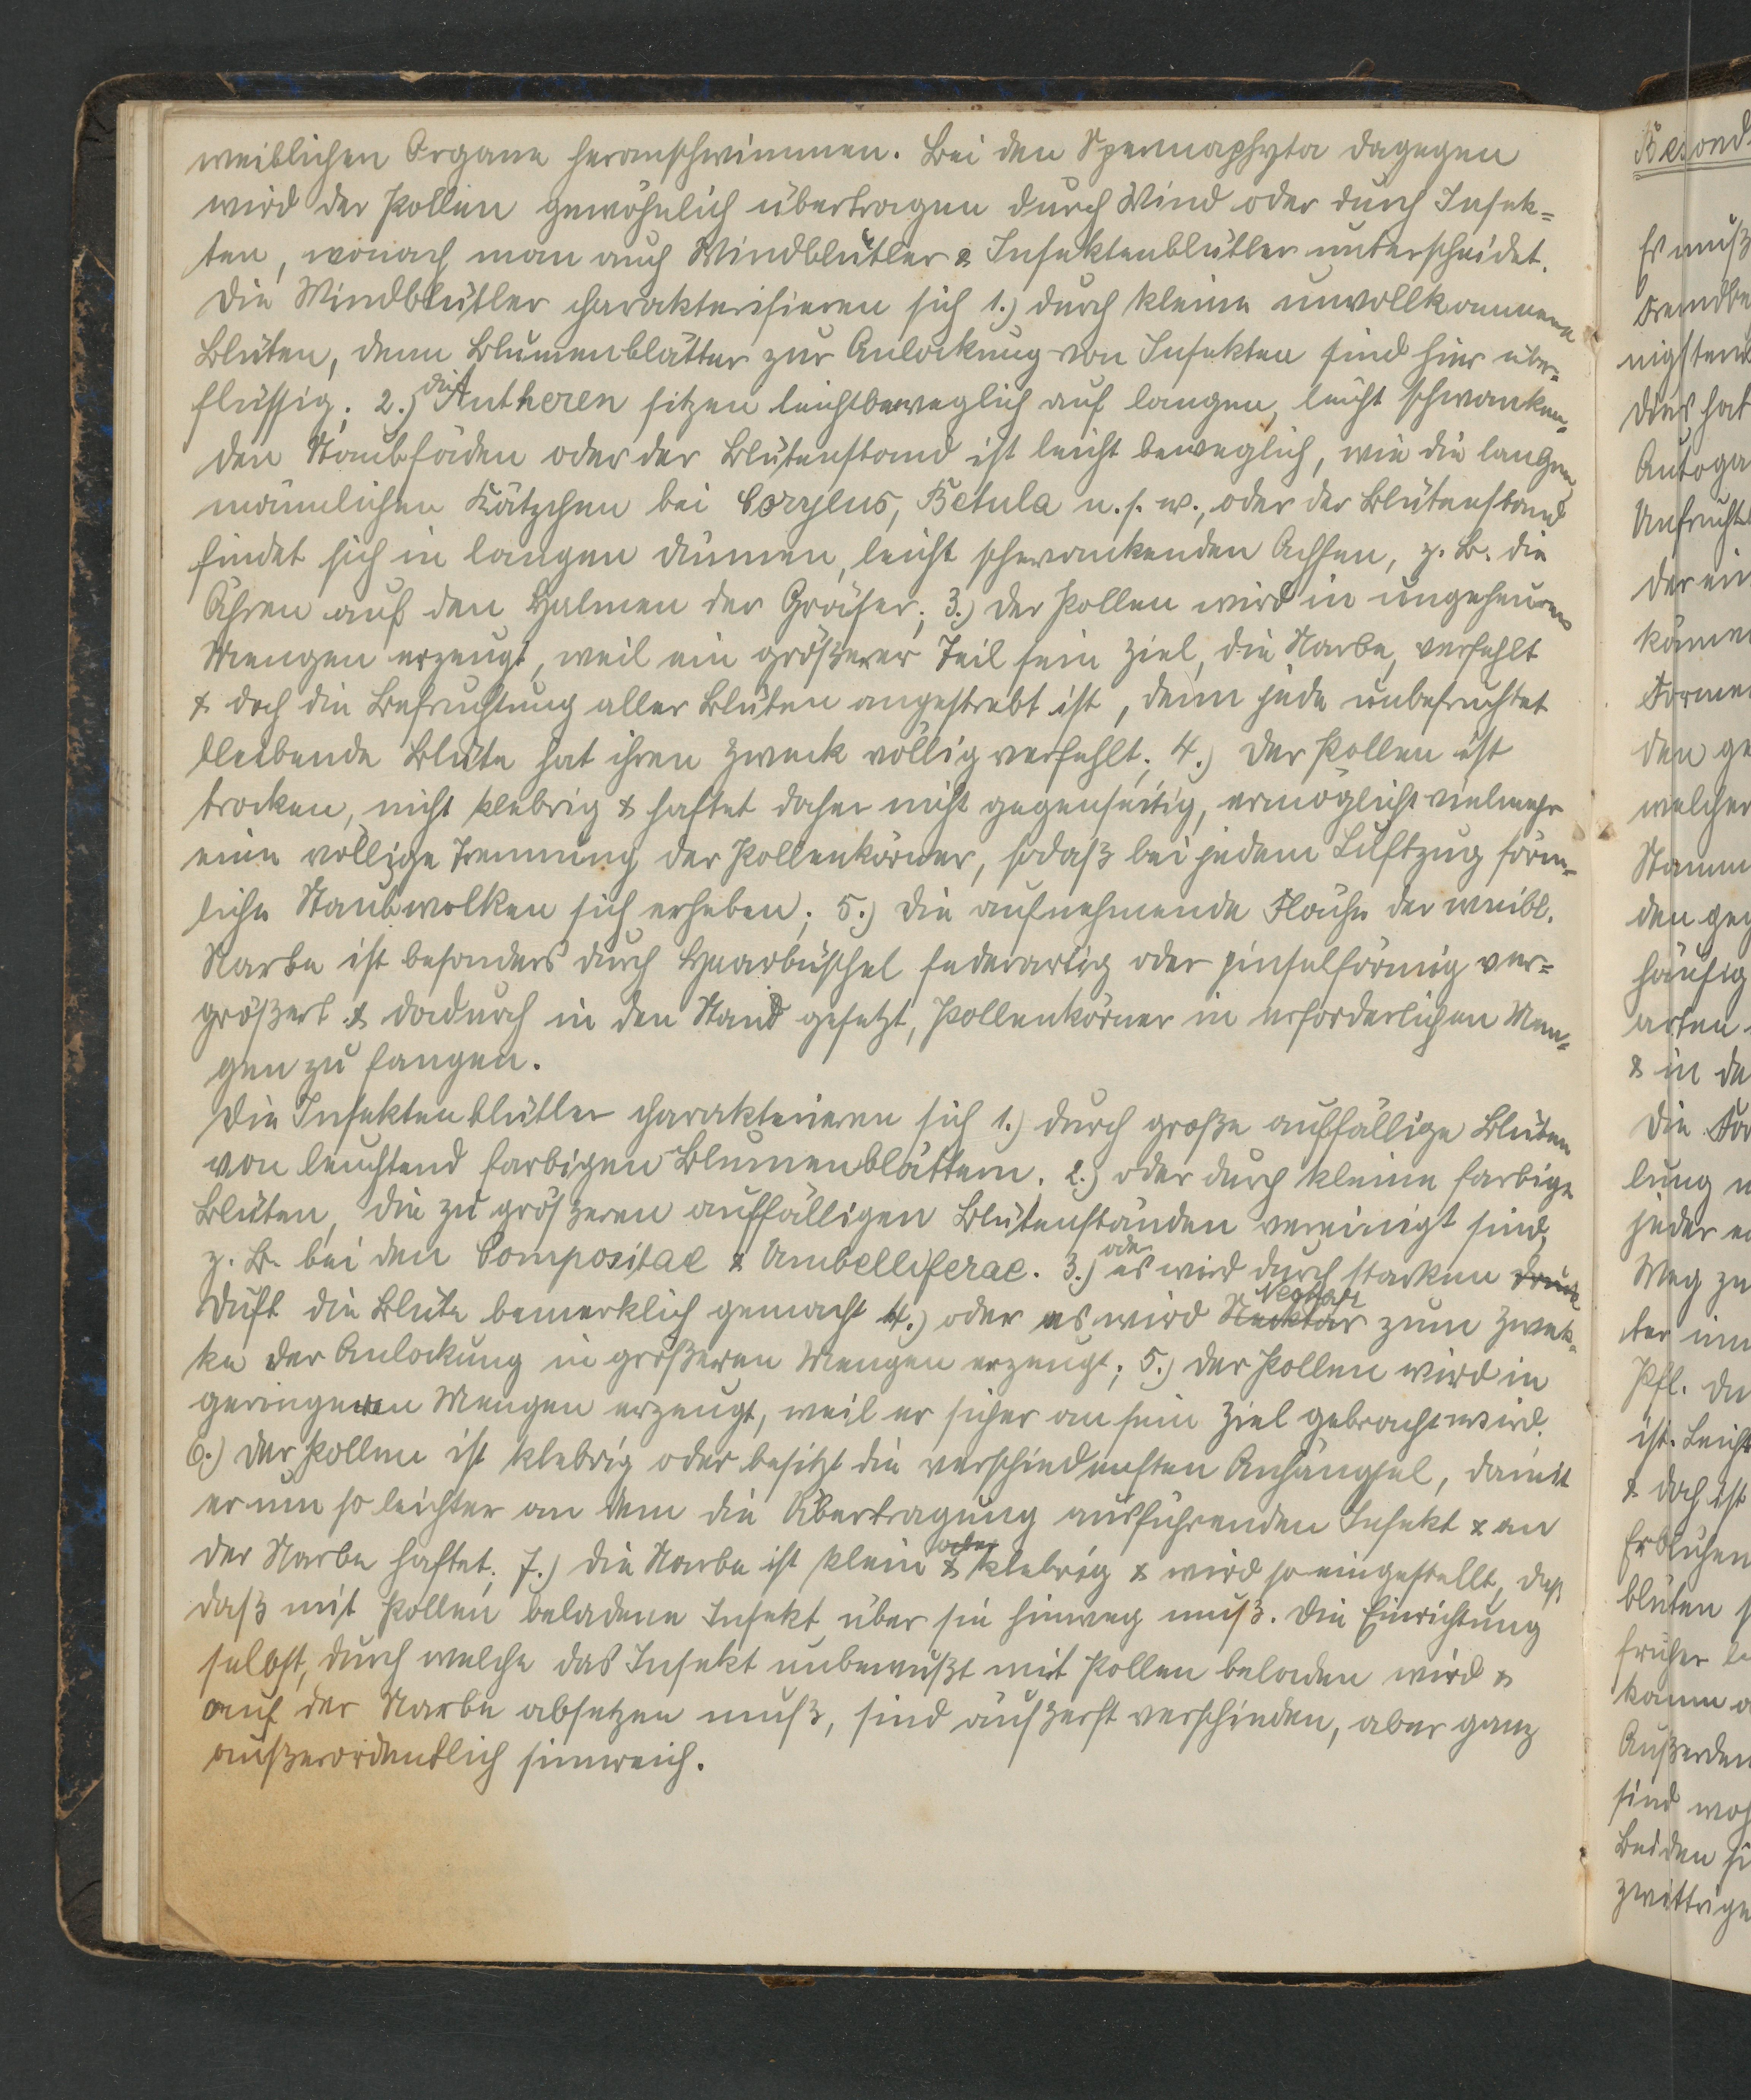 weiblichen Organe heranschwimmen. Bei den Spermaphyta dagegen
wird der Pollen gewöhnlich übertragen durch Wind oder durch Insek-
ten, wonach man auch Windblütler & Insektenblütler unterscheidet.
Die Windblütler charakterisieren sich 1.) durch kleine unvollkommene
Blüten, denn Blumenblätter zur Anlockung von Insekten sind hier über-
flüssig; 2.) die Antheren sitzen leichtbeweglich auf langen, leicht schwanken-
den Staubfäden oder der Blütenstand ist leicht beweglich, wie die langen
männlichen Kätzchen bei Corylus, Betula u.s.w., oder der Blütenstand
findet sich in langen dünnen, leicht schwankenden Achsen, z.B. die
Ähren auf den Halmen der Gräser; 3.) der Pollen wird in ungeheuren
Mengen erzeugt, weil ein größerer Teil sein Ziel, die Narbe, verfehlt
& doch die Befruchtung aller Blüten angestrebt ist, denn jede unbefruchtet
bleibende Blüte hat ihren Zweck völlig verfehlt; 4.) Der Pollen ist
trocken, nicht klebrig & haftet daher nicht gegenseitig, ermöglicht vielmehr
eine völlige Trennung der Pollenkörner, sodaß bei jedem Luftzug förm-
liche Staubwolken sich erheben; 5.) die aufnehmende Fläche der weibl.
Narbe ist besonders durch Haarbüschel federartig oder pinselförmig ver-
größert & dadurch in den Stand gesetzt, Pollenkörner in erforderlichen Men-
gen zu fangen.
Die Insektenblütler charakterieren sich 1.) durch große auffällige Blüten
von leuchtend farbigen Blumenblättern. 2.) oder durch kleine farbige
Blüten, die zu größeren auffälligen Blütenständen vereinigt sind,
z.B. bei den Compositae & Umbelliferae. 3.) oder es wird durch starken Druck
Duft die Blüte bemerklich gemacht 4.) oder es wird Necktar Nektar zum Zwek-
ke der Anlockung in größeren Mengen erzeugt; 5.) der Pollen wird in
geringeren Mengen erzeugt, weil er sicher an sein Ziel gebracht wird.
6.) Der Pollen ist klebrig oder besitzt die verschiedensten Anhängsel, damit
er um so leichter an dem die Übertragung ausführenden Insekt & an
der Narbe haftet; 7.) die Narbe ist klein & aber klebrig & wird so eingestellt, daß
daß mit Pollen beladene Insekt über sie hinweg muß. Die Einrichtung
selbst, durch welche das Insekt unbewußt mit Pollen beladen wird &
auf der Narbe absetzen muß, sind äußerst verschieden, aber ganz
außerordentlich sinnreich.
Besond
Es muß
Fremdbe
nigstens
Dies hat
Autoga
Unfrucht
der ein
können
Formen
den ge
welcher
Stamm
den geg
häufig
arten
& in de
Die For
lung
jeder
Weg zu
der im
Pfl. de
ist. Leicht
& doch ist
Erblühen
blüten
früher
kann
Außerdem
sind
Beiden
zwittrige